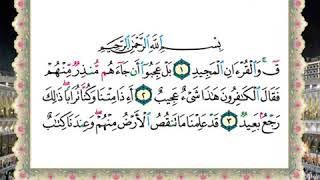 بِسْمِ ٱللَّهِ ٱلرَّحْمَٰنِ ٱلرَّحِيمِ
قٓ ۚ وَٱلْقُرْءَانِ ٱلْمَجِيدِ ١ بَلْ عَجِبُوٓا۟ أَن جَآءَهُم مُّنذِرٌ مِّنْهُمْ
فَقَالَ ٱلْكَٰفِرُونَ هَٰذَا شَىْءٌ عَجِيبٌ ٢ أَءِذَا مِتْنَا وَكُنَّا تُرَابًا ۖ ذَٰلِكَ
رَجْعٌۢ بَعِيدٌ ٣ قَدْ عَلِمْنَا مَا تَنقُصُ ٱلْأَرْضُ مِنْهُمْ ۖ وَعِندَنَا كِتَٰبٌ